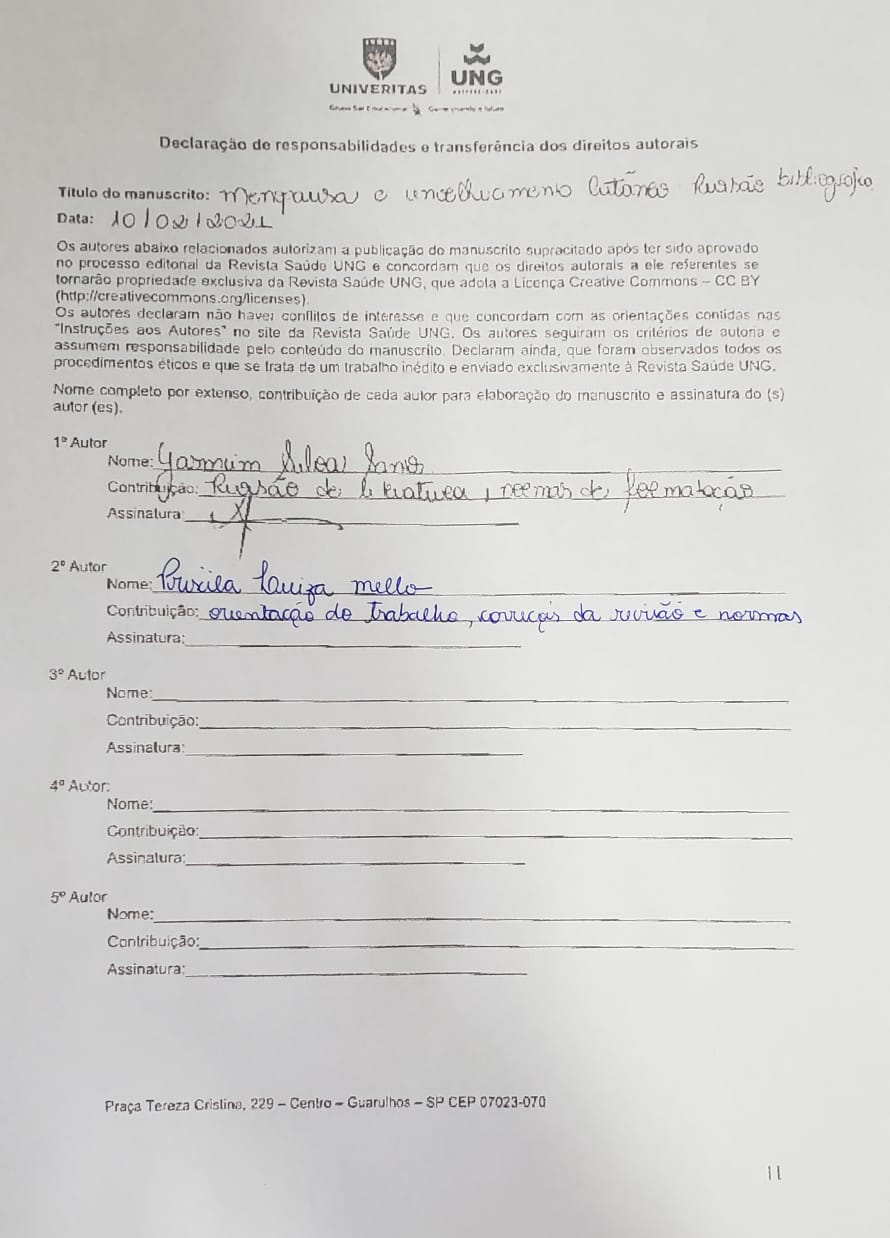 UNIVERITAS
UNG
Declaração de responsabilidades e transferência dos direitos autorais
Título do manuscrito: Menopausa e envelhecimento Cutâneo Revisão bibliografica
Data: 10/02/2021
Os autores abaixo relacionados autorizam a publicação do manuscrito supracitado após ter sido aprovado
no processo editorial da Revista Saúde UNG e concordam que os direitos autorais a ele referentes se
tornarão propriedade exclusiva da Revista Saúde UNG, que adota a Licença Creative Commons – CC BY
(http://creativecommons.org/licenses).
Os autores declaram não haver conflitos de interesse e que concordam com as orientações contidas nas
"Instruções aos Autores" no site da Revista Saúde UNG. Os autores seguiram os critérios de autoria e
assumem responsabilidade pelo conteúdo do manuscrito. Declaram ainda, que foram observados todos os
procedimentos éticos e que se trata de um trabalho inédito e enviado exclusivamente à Revista Saúde UNG.
Nome completo por extenso, contribuição de cada autor para elaboração do manuscrito e assinatura do (s)
autor (es).
1º Autor
Nome: Yasmim Silva
Contribuição: Revisão de literatura, normas de formatação
Assinatura:
2º Autor
Nome: Priscila Louiza mello
Contribuição: orientação do trabalho, correção da revisão e normas
Assinatura:
3º Autor
Nome:
Contribuição:
Assinatura:
4º Autor:
Nome:
Contribuição:
Assinatura:
5º Autor
Nome:
Contribuição:
Assinatura:
Praça Tereza Cristina, 229 – Centro – Guarulhos – SP CEP 07023-070
11